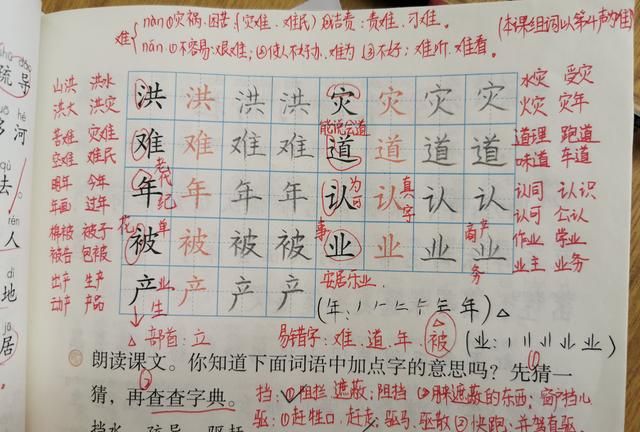 难 nàn ①灾祸、困苦(灾难、难民)②诘责:责难、刁难。 (本课组词以第4声为准)
nán ①不容易:艰难;②使人不好办、难为 ③不好:难听、难看。
疏导
山洪 洪水 洪 洪 洪 洪 灾 灾 灾 灾 水灾 受灾
洪大 洪灾 火灾 灾年
能说会道
苦难 灾难 难 难 难 难 道 道 道 道 道理 跑道
难民 味道 车道
明年 今年 年 年 年 年 认 认 认 认 认同 认识
年代 年纪 为可 真 字
年画 过年 认可 公认
棉被 被子 被 被 被 被 业 业 业 业 作业 学业
花 单 事 商 产 务
被告 包被 业主 业务
出产 生产 产 产 产 产 安居乐业
业 生
动产 产品 (年:丿 年)
部首:立 易错字:难、道、年、被 (业: 业)
朗读课文。你知道下面词语中加点字的意思吗?先猜一
猜,再查查字典。 挡:①阻挡、遮蔽;阻挡 ②用来遮蔽的东西;窗户挡儿
驱:①赶牲口、赶走;驱马、驱散 ②快跑:并驾直驱
挡水 疏导 驱赶